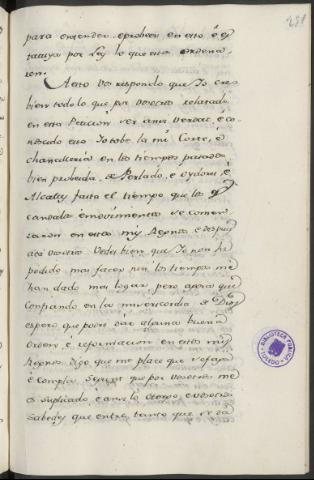 281
para entender, e proveer en esto, é es
tatuya por Ley lo que esto ordena
ren.
A esto vos respondo que Yo creo
bien todo lo que por vosotros relatado
en esta Peticion ser ansi verdad, é co-
nosciendo esto Yo tobe la mi Corte, é
chancilleria en los tiempos pasados
bien proheida de Perlado, e Oydores, é
Alcaldes fasta el tiempo que los es
candalos é movimientos se comen
zaron en estos mis Reynos, e despues
acá vosotros vedes bien que Yo non he
podido mas facer, nin los tiempos me
han dado mas logar, pero agora que
confiando en la misericordia de Dios
espero que podré dar alguna buena
orden, é reformacion en estos mis
Reynos, digo que me place que se faga
é cumpla segund que por vosotros me
es suplicado, e ansi lo otorgo, e vosotros
sabedes que entre tanto que se dá
BIBLIOTECA PUBLICA